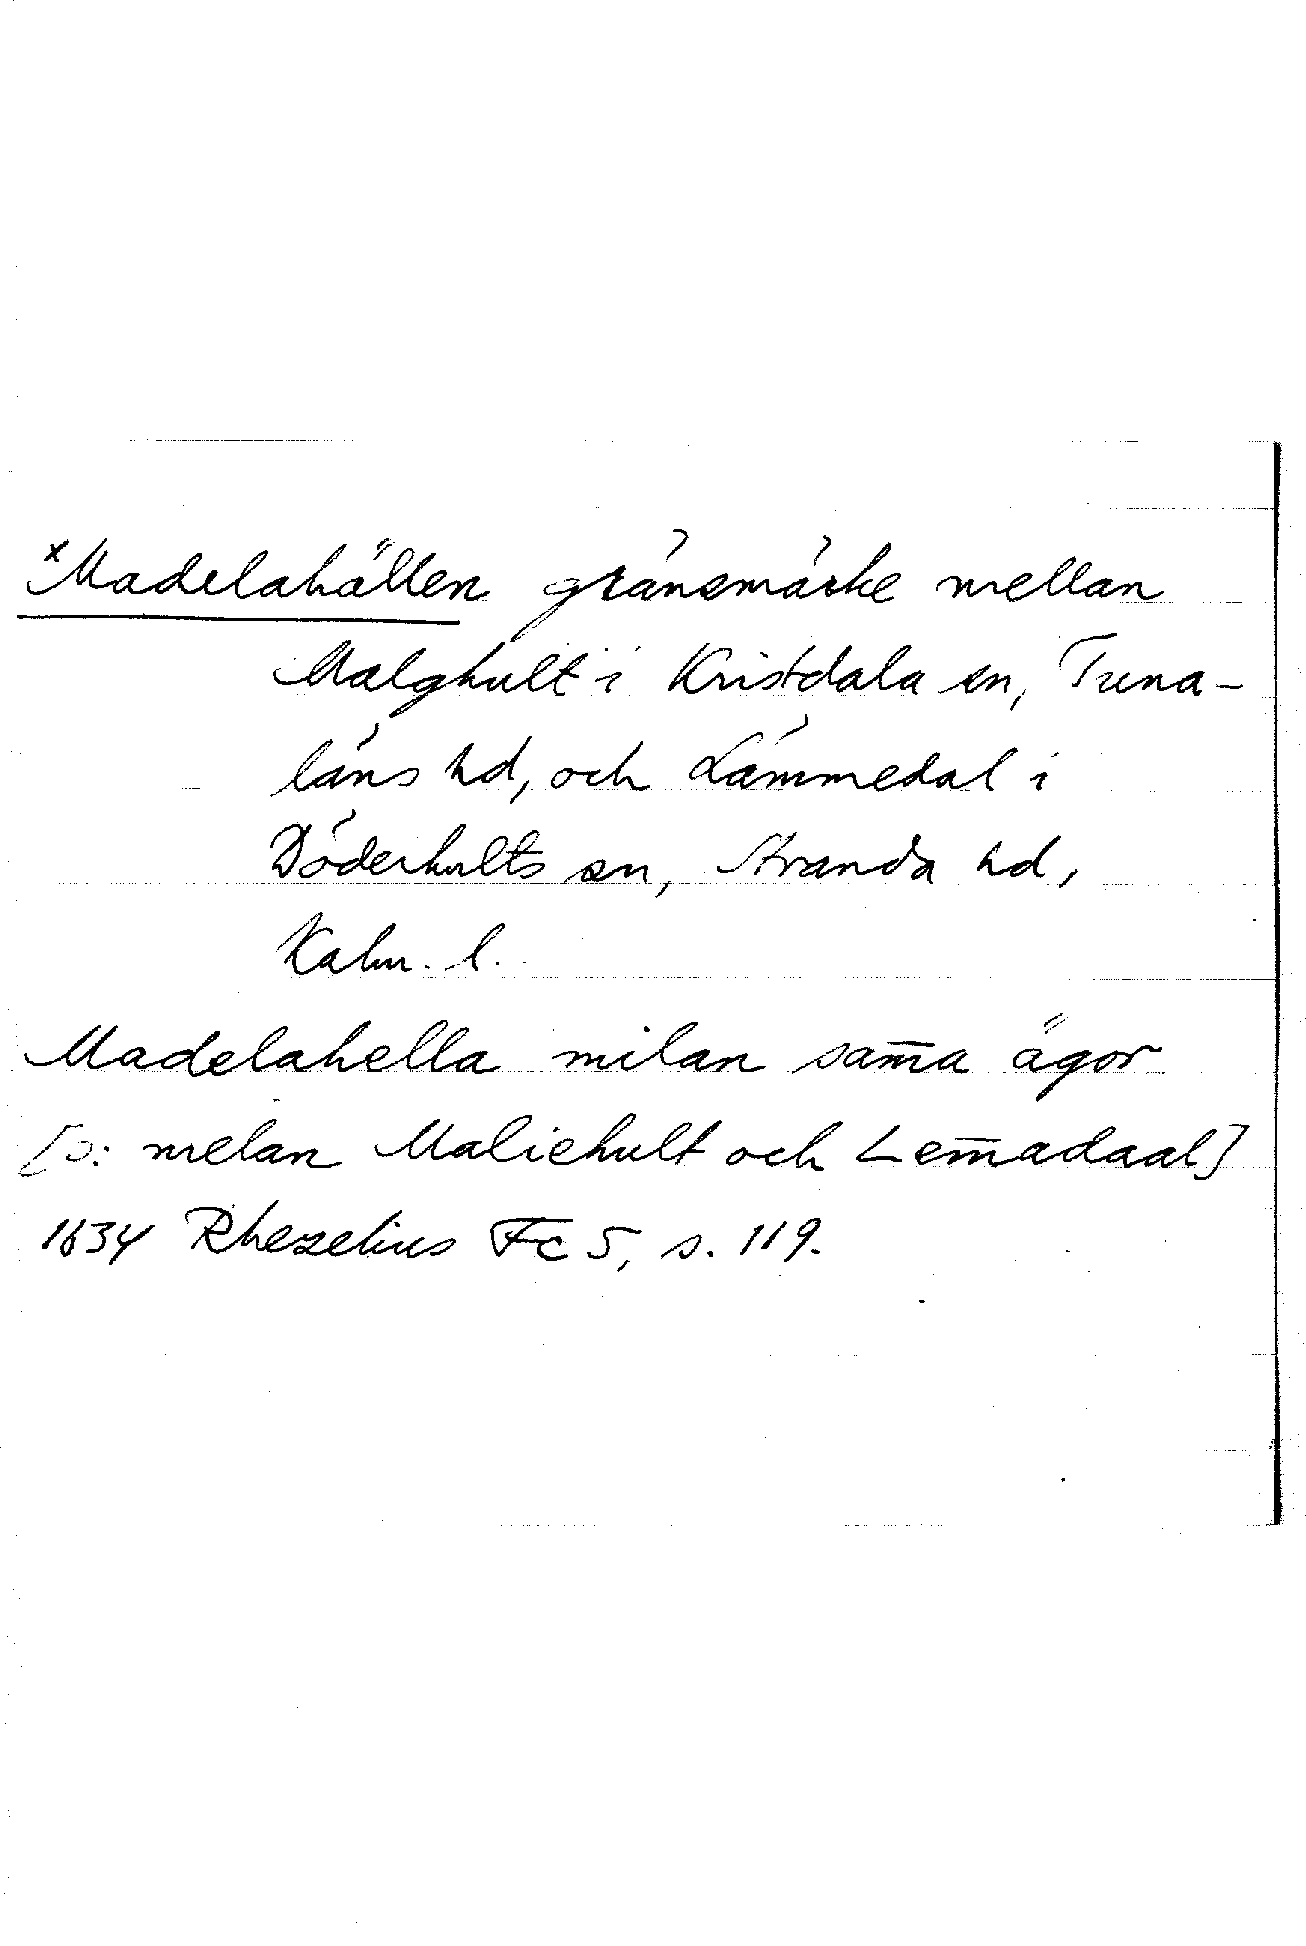 ×Madelahällen gränsmärke mellan
Malghult i Kristdala sn, Tuna-
läns hd, och Lämmedal i
Döderhults sn, Stranda hd,
Kalm. l.
Madelahella milan sam̄a ägor
[ɔ: melan Maliehult och Lem̄adaal]
1634 Rhezelius Fc 5, s. 119.